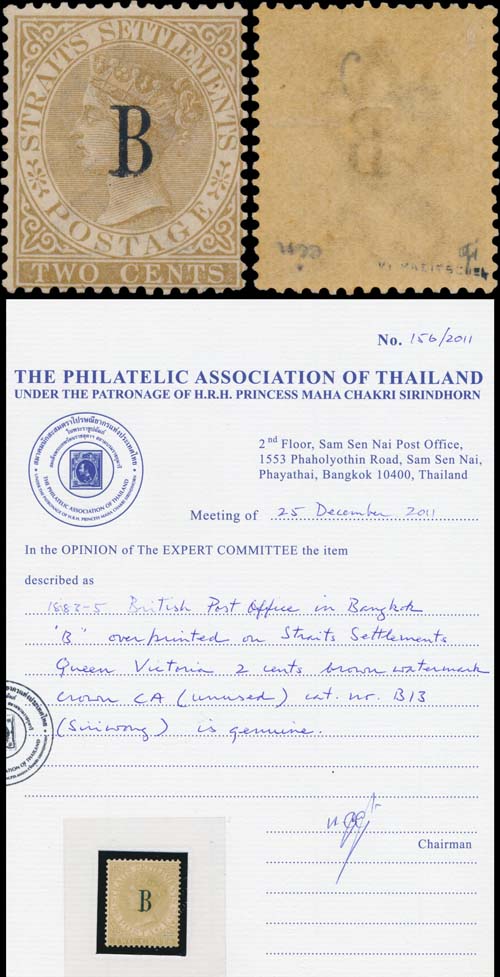 STRAITS SETTLEMENTS
B
POSTAGE
TWO CENTS
B
No. 156/2011
THE PHILATELIC ASSOCIATION OF THAILAND
UNDER THE PATRONAGE OF H.R.H. PRINCESS MAHA CHAKRI SIRINDHORN
THE PHILATELIC ASSOCIATION OF THAILAND
2nd Floor, Sam Sen Nai Post Office,
1553 Phaholyothin Road, Sam Sen Nai,
Phayathai, Bangkok 10400, Thailand
Meeting of 25 December 2011
In the OPINION of The EXPERT COMMITTEE the item
described as
1883-5 British Post Office in Bangkok
"B" overprinted on Straits Settlements
Queen Victoria 2 cents brown watermark
crown CA (unused) cat. nr. B13
(Siriwong) is genuine.
Chairman
B